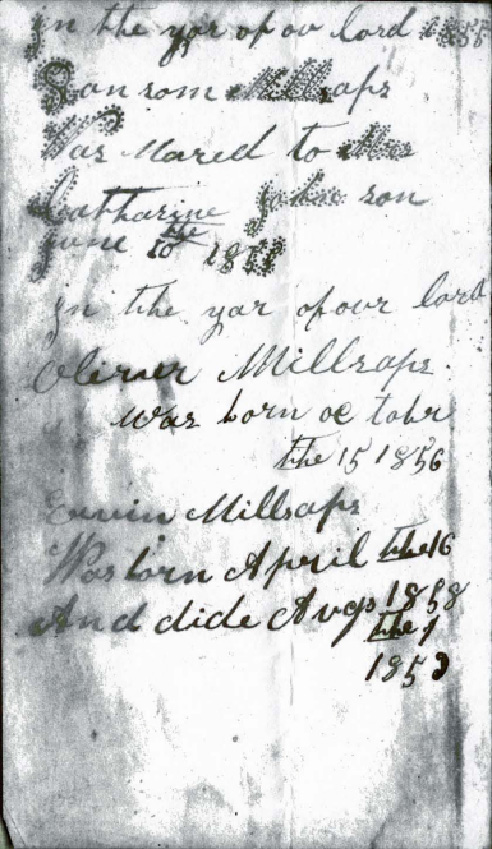 in the yar of ou lord 1855
San som Millsaps
Was Mared to Mis
Catharine John son
June the 10 18
in the yar of our lord
Oliver Millsaps
was born oc tobr
the 15 1856
Ervin Millsaps
Was born April the 16
1858
And dide Augs the 1
185